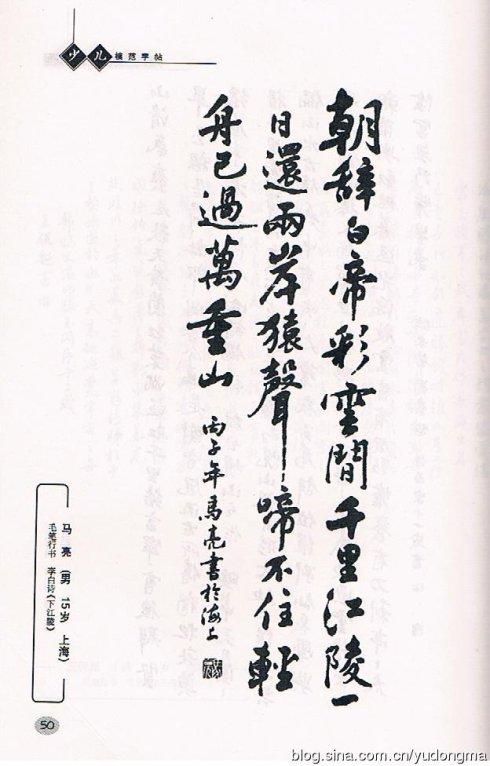 少儿模范字帖
朝辞白帝彩雲間千里江陵一
日還兩岸猿聲啼不住輕
舟已過萬重山
丙子年馬亮書於海上
马亮（男 15岁 上海）
毛笔行书 李白诗《下江陵》
50
blog.sina.com.cn/yudongma